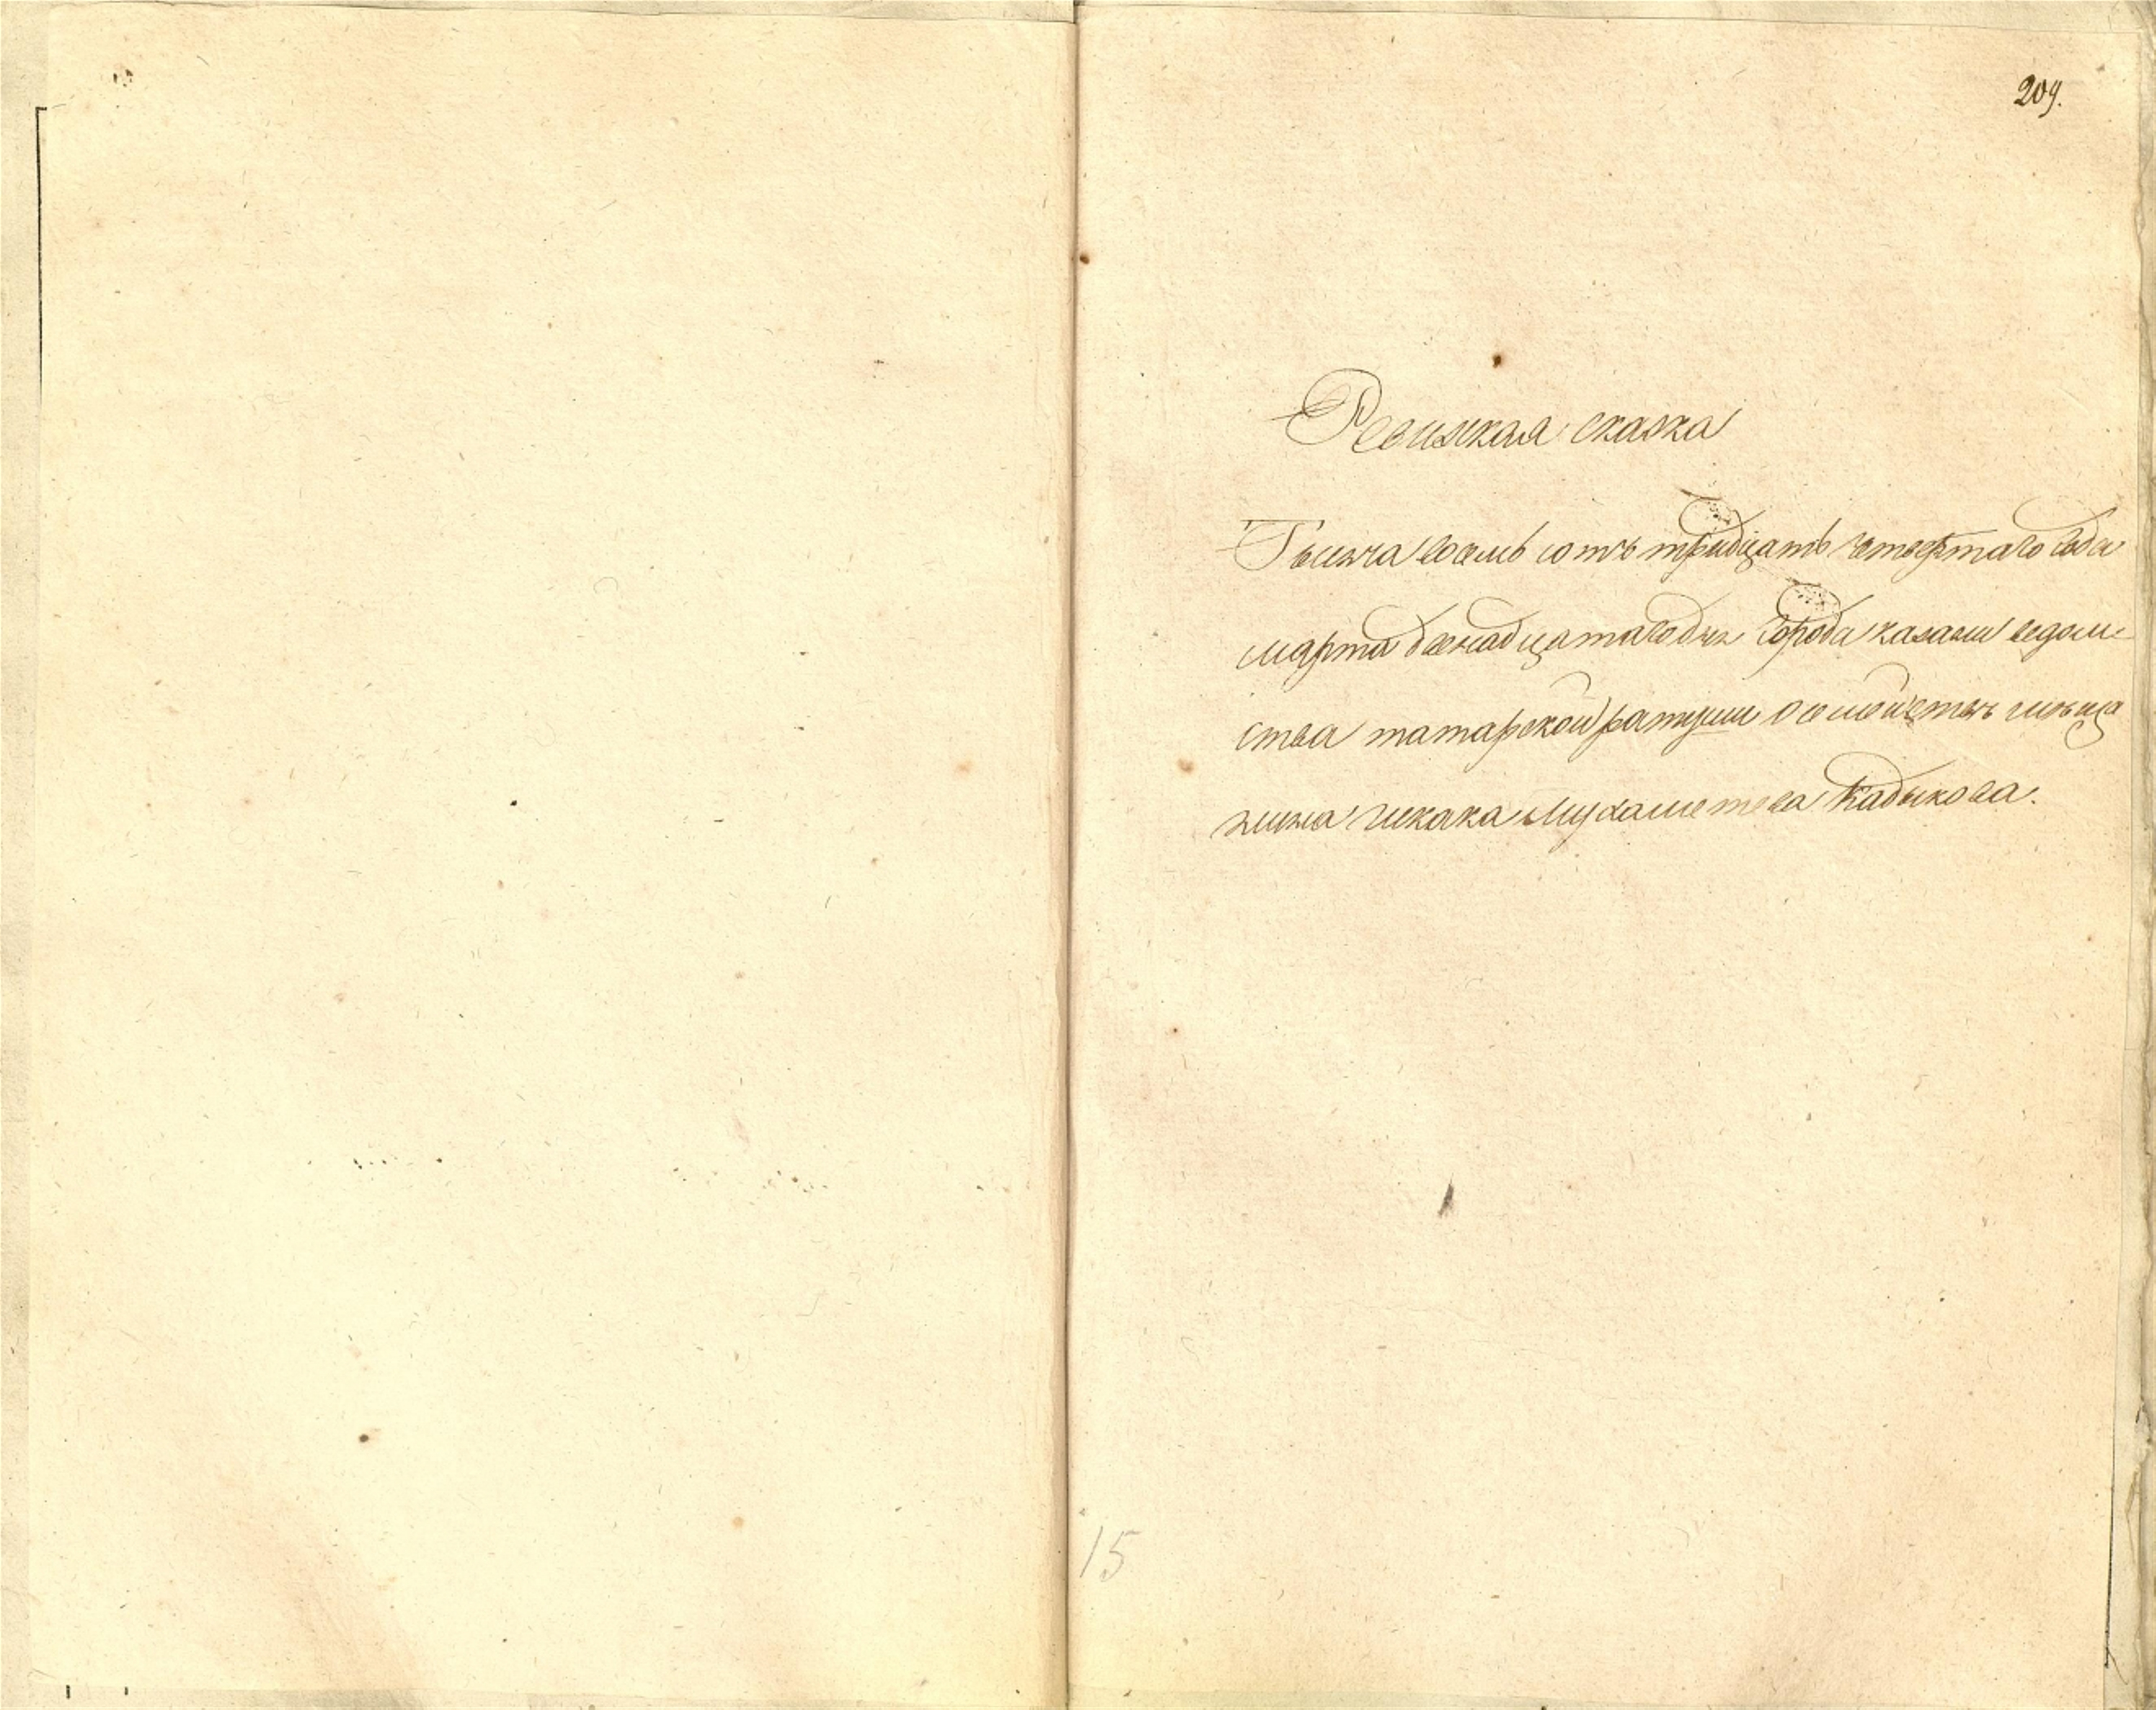 209.
Ревижкая сказка
Тысяча восемь сотъ тридцать четвертаго года
марта двенадцатаго дня города казани ведом-
ства татарской ратуши о семействѣ мѣща
нина Мухаметева Кадыкова.
15